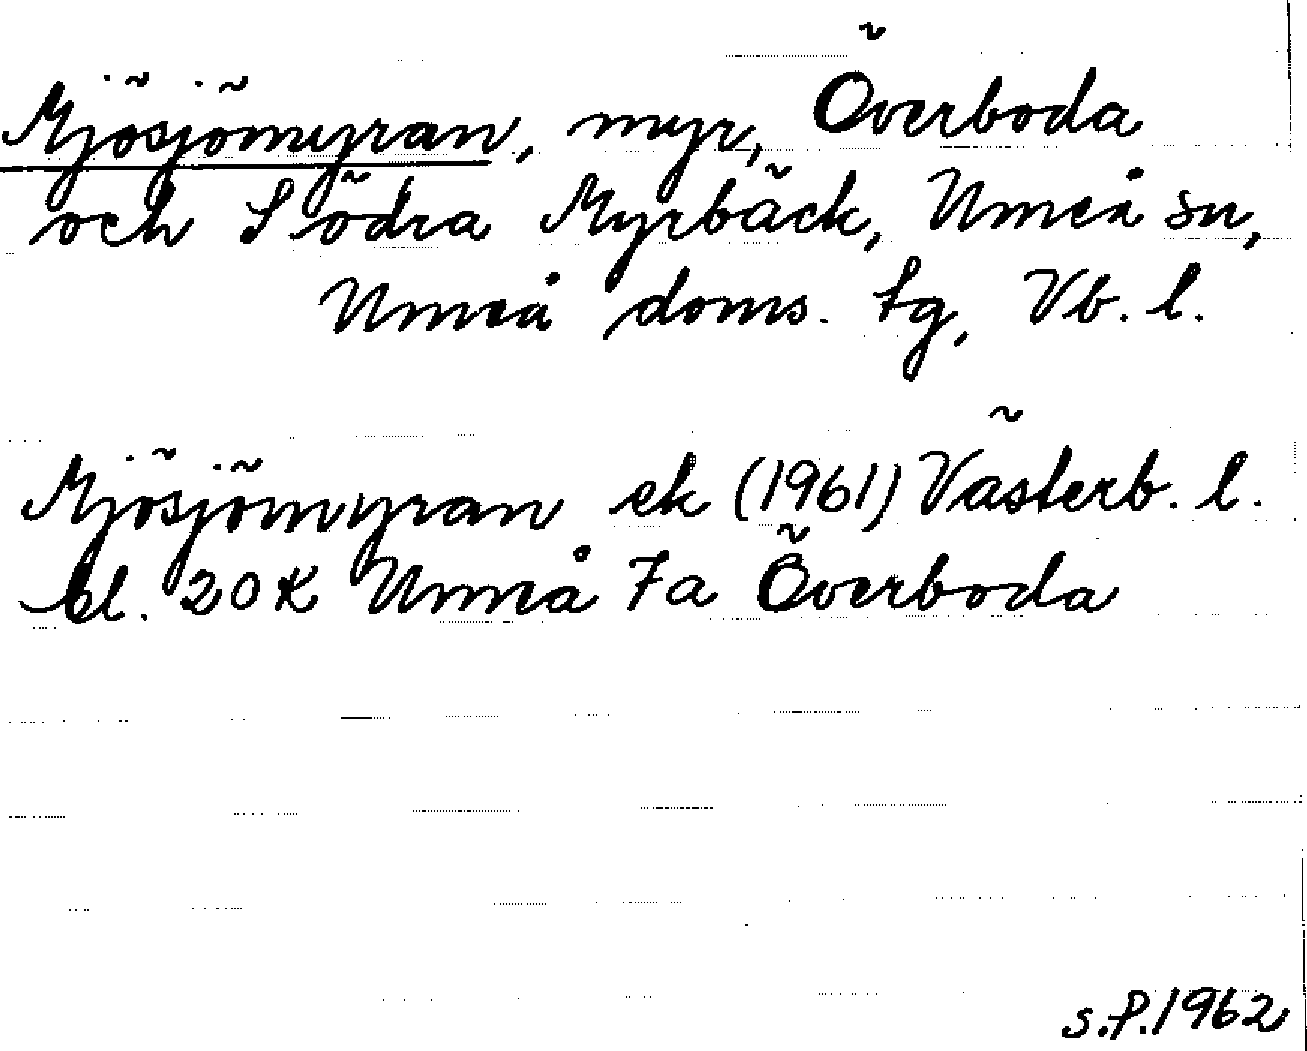 Mjösjömyran, myr, Överboda
och Södra Myrbäck, Umeå sn,
Umeå doms. tg, Vb. l.
Mjösjömyran ek (1961) Västerb. l.
bl. 20K Umeå 7a Överboda
s.f.1962